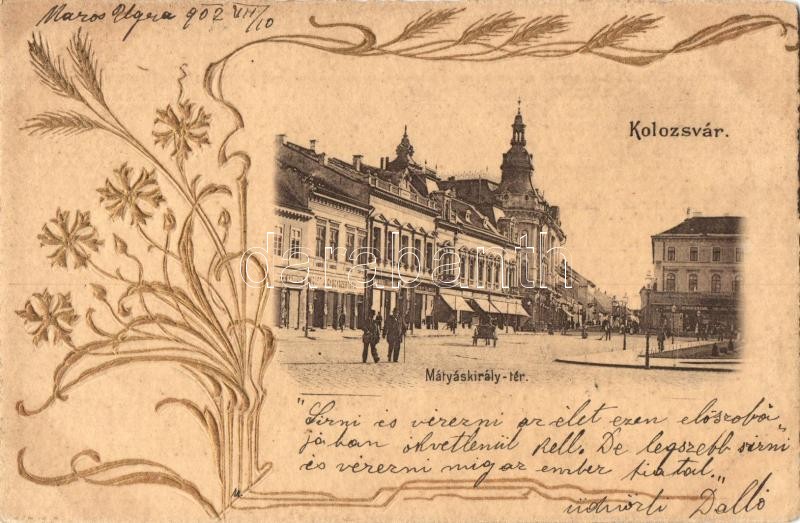 Maros Ugra 902 VII/10
Kolozsvár.
darabanth
Mátyáskirály-tér.
"Sirni és vérezni az élet ezen előszobá
jában okvetlenül kell. De legszebb sirni
és vérezni mig az ember fiatal."
üdvözli Dalló